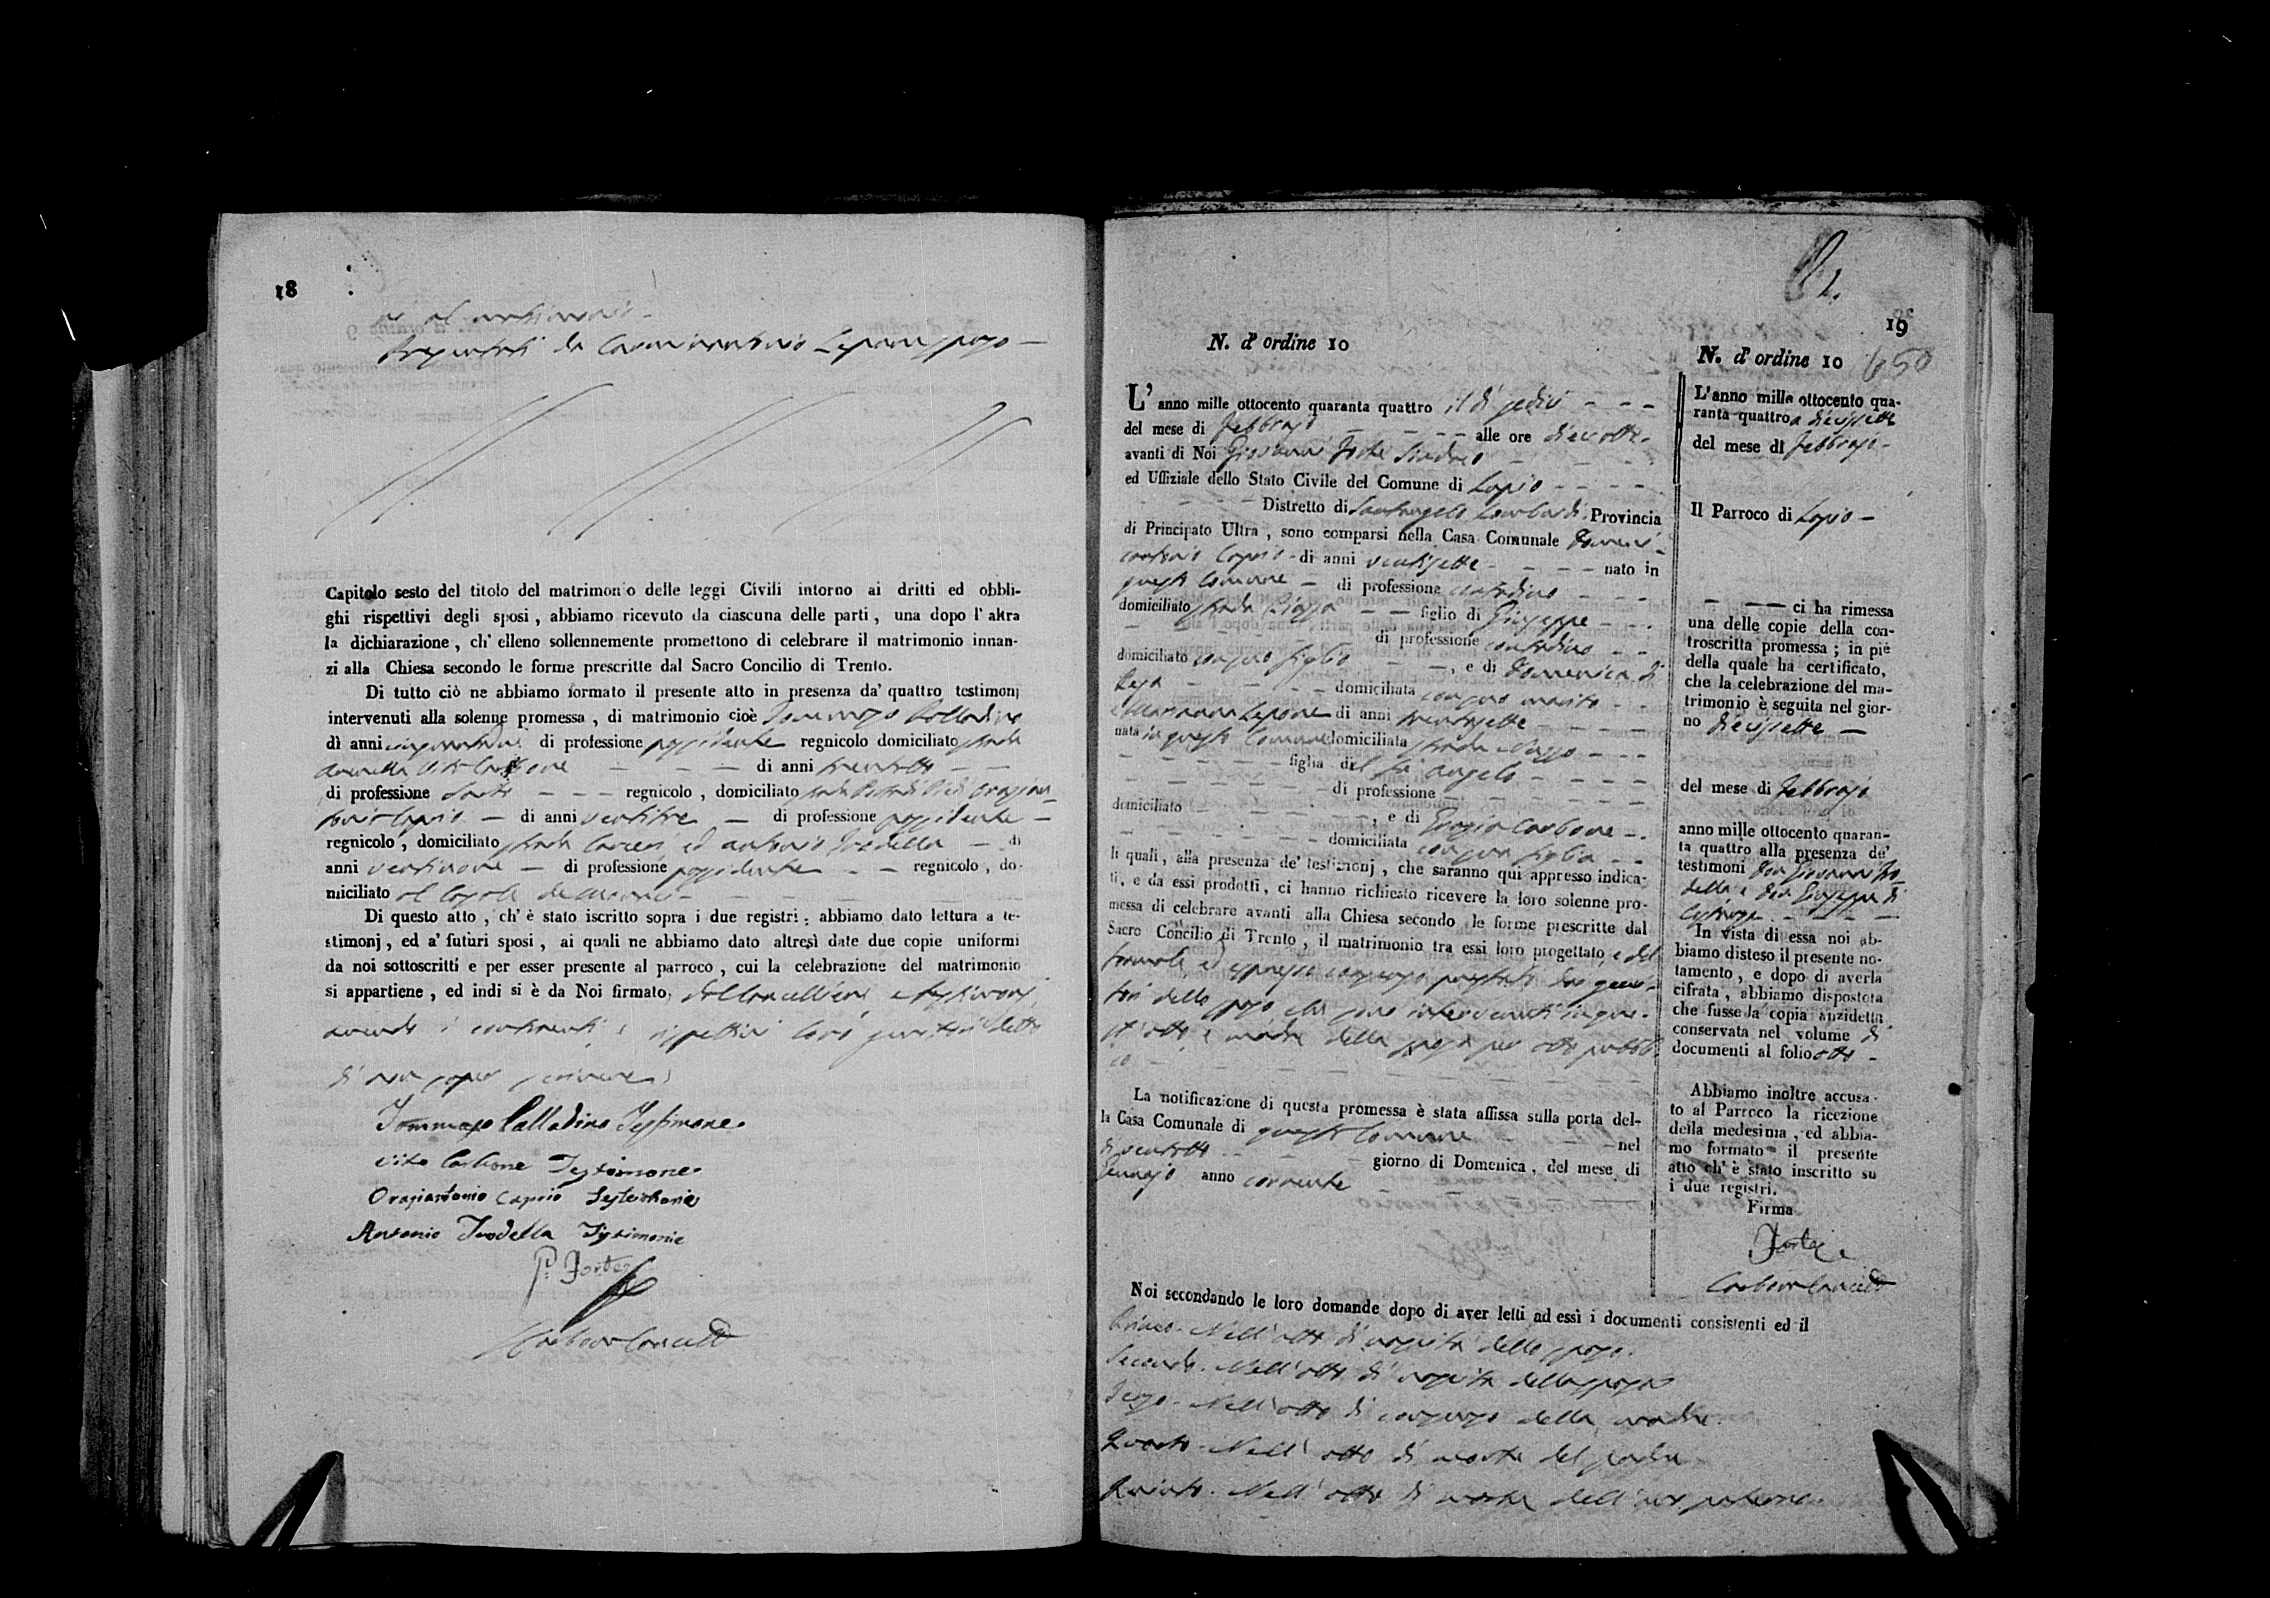 18
Capitolo sesto del titolo del matrimonio delle leggi Civili intorno ai dritti ed obbli-
ghi rispettivi degli sposi, abbiamo ricevuto da ciascuna delle parti, una dopo l'altra
la dichiarazione, ch'elleno sollennemente promettono di celebrare il matrimonio innan-
zi alla Chiesa secondo le forme prescritte dal Sacro Concilio di Trento.
Di tutto ciò ne abbiamo formato il presente atto in presenza da' quattro testimonj
intervenuti alla solenne promessa, di matrimonio cioè Tommaso Palladino
di anni di professione possidente regnicolo domiciliato strada
Vito Carbone di anni trentotto
di professione Sarto regnicolo, domiciliato strada
Caprio di anni ventitre di professione possidente
regnicolo, domiciliato strada ed Antonio Trodella di
anni ventinove di professione possidente regnicolo, do-
miciliato
Di questo atto, ch'è stato iscritto sopra i due registri: abbiamo dato lettura a te-
stimonj, ed a' futuri sposi, ai quali ne abbiamo dato altresì date due copie uniformi
da noi sottoscritti e per esser presente al parroco, cui la celebrazione del matrimonio
si appartiene, ed indi si è da Noi firmato, dal Cancelliere e testimonj,
avendo i contraenti, e rispettivi loro genitori detto
di non saper scrivere
Tommaso Palladino Testimone
Vito Carbone Testimone
Oraziantonio Caprio Testimonie
Antonio Trodella Testimonie
G. Forte
Carbone Cancell
19
N. d'ordine 10
L'anno mille ottocento quaranta quattro il dì sedici
del mese di Febbrajo alle ore dieciotto
avanti di Noi Giovanni Forte Sindaco
ed Uffiziale dello Stato Civile del Comune di Lapio
Distretto di Santangelo Lombardi Provincia
di Principato Ultra, sono comparsi nella Casa Comunale Domeni-
cantonio Caprio di anni ventisette nato in
questo Comune di professione contadino
domiciliato strada Piazza figlio di Giuseppe
di professione contadino
domiciliato con suo figlio, e di Domenica di
domiciliata con suo marito
e Marianna Lepore di anni trentasette
nata in questo Comune domiciliata strada
figlia del fu Angelo
di professione
domiciliato, e di Carbone
domiciliata con sua figlia
li quali, alla presenza de' testimonj, che saranno qui appresso indica-
ti, e da essi prodotti, ci hanno richiesto ricevere la loro solenne pro-
messa di celebrare avanti alla Chiesa secondo le forme prescritte dal
Sacro Concilio di Trento, il matrimonio tra essi loro progettato, e del
formale, ed espresso consenso prestato dai geni-
tori dello sposo che sono intervenuti in que-
st'atto, e madre della sposa per atto pubbli-
co
La notificazione di questa promessa è stata affissa sulla porta del-
la Casa Comunale di questo Comune nel
dì ventotto giorno di Domenica, del mese di
Gennajo anno corrente
Noi secondando le loro domande dopo di aver letti ad essi i documenti consistenti ed il
Primo. Nell'atto di nascita dello sposo.
Secondo. Nell'atto di nascita della sposa
Terzo. Nell'atto di consenso della madre.
Quarto. Nell'atto di morte del padre
Quinto. Nell'atto di morte dell'avo paterno.
N. d'ordine 10
650
L'anno mille ottocento qua-
ranta quattro a diecissette
del mese di Febbrajo
Il Parroco di Lapio
ci ha rimessa
una delle copie della con-
troscritta promessa; in piè
della quale ha certificato,
che la celebrazione del ma-
trimonio è seguita nel gior-
no diecissette
del mese di Febbrajo
anno mille ottocento quaran-
ta quattro alla presenza de'
testimoni Don Giovanni Tro-
della e Don Giuseppe di
In vista di essa noi ab-
biamo disteso il presente no-
tamento, e dopo di averla
cifrata, abbiamo dispostora
che fusse la copia anzidetta
conservata nel volume di
documenti al folio otto
Abbiamo inoltre accusa-
to al Parroco la ricezione
della medesima, ed abbia-
mo formato il presente
atto ch'è stato inscritto su
i due registri.
Firma
Forte
Carbone Cancell